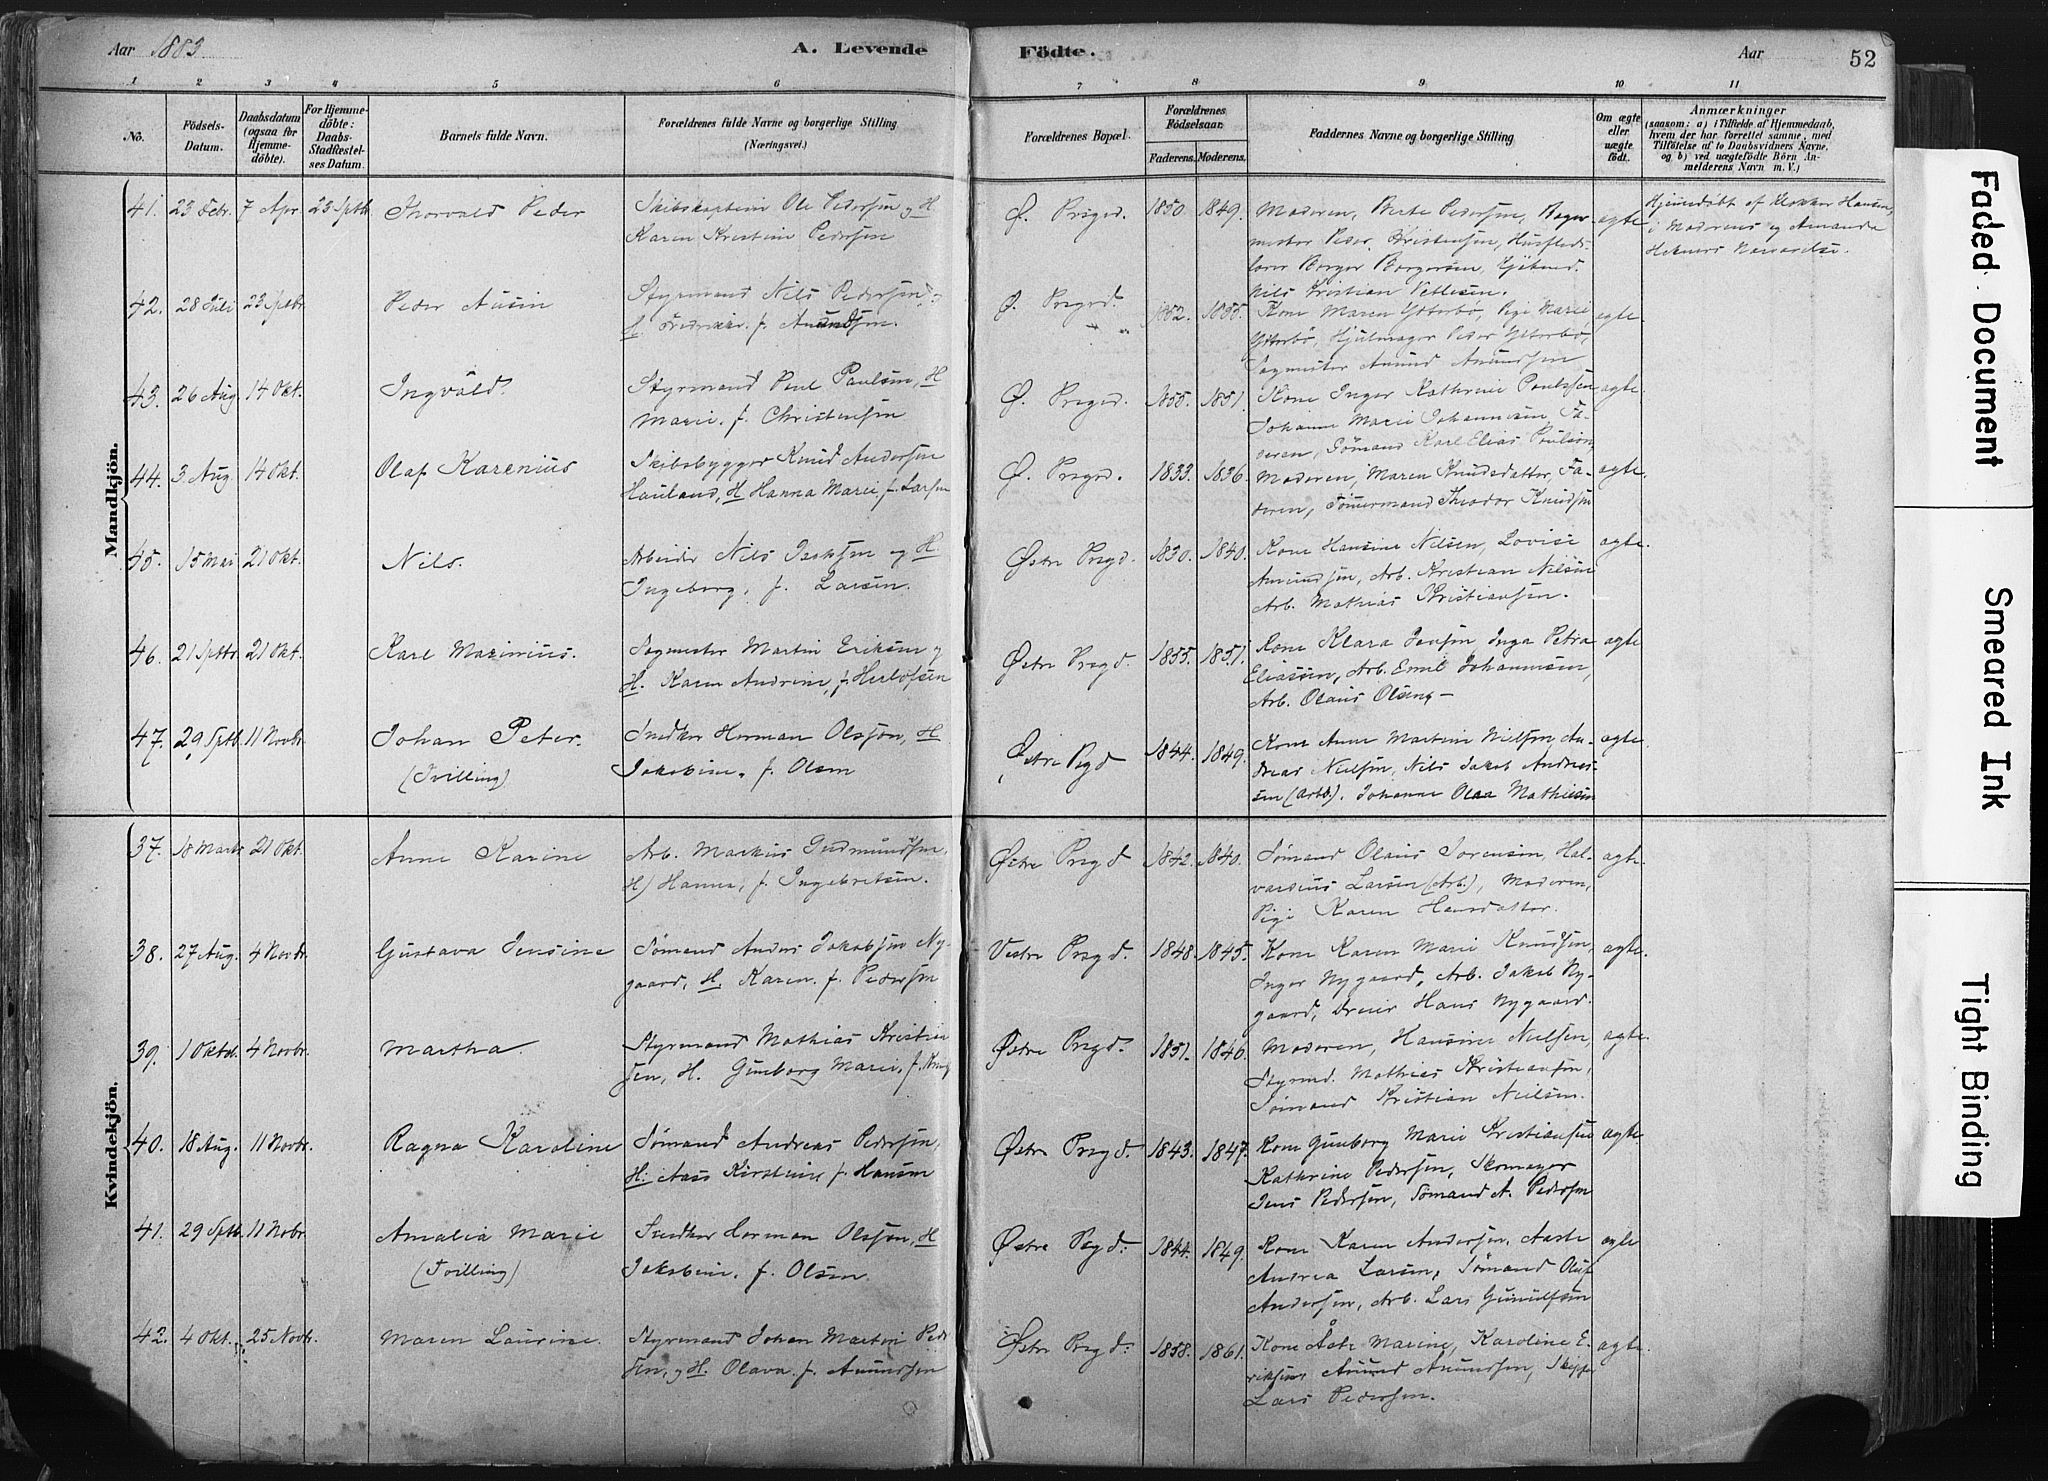 Aar 1883
A. Levende
Födte.
Aar
52
1 2 3 4 5 6 7 8 9 10 11
No.
Födsels-
Datum.
Daabsdatum
(ogsaa for
Hjemme-
döbte).
For Hjemme-
döbte:
Daabs-
Stadfæstel-
ses Datum.
Barnets fulde Navn.
Forældrenes fulde Navne og borgerlige Stilling
(Næringsvei.)
Forældrenes Bopæl.
Forældrenes
Födselsaar.
Faderens. Moderens.
Faddernes Navne og borgerlige Stilling
Om ægte
eller
uægte
födt.
Anmærkninger
(saasom: a) i Tilfælde af Hjemmedaab,
hvem der har forrettet samme, med
Tilföielse af to Daabsvidners Navne,
og b) ved uægtefödte Börn An-
melderens Navn m. V.)
Mandkjön.
41. 23 Febr. 7 Apr. 23 Sptb. Thorvald Peder
Skibskaptein Ole Pedersen og H
Karen Kristine Pedersen
Ø. Prsgrd. 1850. 1849.
Moderen, Berte Pedersen, Bager-
mester Peder Kristensen,
Borger Borgersen,
Nils Kristian Vettesen.
ægte
Hjemmedøbt af Klokker Hansen,
i Moderens og Amanda
Nærværelse.
42. 28 Juli 23 Sptbr. Peder Ausin
Styrmand Nils Pedersen
f. Anundsen.
Ø. Prsgrd. 1852. 1855.
Kone Maren Ytterbø, Pige Marie
Ytterbø, Hjulmager Peder Ytterbø,
Sagmester Anund Anundsen
ægte.
43. 26 Aug. 14 Okt. Ingvald.
Styrmand Paul Paulsen, H
Marie, f. Christensen
Ø. Prsgrd. 1855. 1851.
Kone Inger Kathrine Paulsen
Johanne Marie Johannesen, Fa-
deren, Sømand Karl Elias Poulson,
ægte
44. 3 Aug. 14 Okt. Olaf Karenius
Skibsbygger Knud Andersen
Hauland, H Hanna Marie, f. Larsen
Ø. Prsgrd. 1833. 1836.
Moderen, Maren Knudsdatter, Fa-
deren, Tømermand Theodor Knudsen
ægte
45. 15 Mai 21 Okt. Nils.
Arbeider Nils Isaksen og H
Ingeborg, f. Larsen.
Østre Prsgd. 1830. 1840.
Kone Hansine Nilsen, Lovise
Amundsen, Arb. Kristian Nilsen
Arb. Mathias Kristiansen.
ægte.
46. 21 Sptbr. 21 Okt. Karl Marinius.
Sagmester Martin Eriksen og
H. Karen Andrine, f. Herlofsen
Østre Prsgd. 1855. 1851.
Kone Klara Jensen, Inga Petra
Eliassen, Arb. Emil Johannesen,
Arb. Olaus Olsen,
ægte
47. 29 Sptb. 11 Novbr. Johan Peter.
(Tvilling)
Snedker Herman Olsson, H
Jakobine, f. Olsen
Østre Psgd 1844. 1849.
Kone Anne Martine Nielsen An-
dreas Nielsen, Nils Jakob Andreas-
sen (Arbb.). Johanne Olea Mathiesen
ægte.
Kvindekjön.
37. 18 Marts 21 Okt. Anne Karine
Arb. Markus Gudmundsen,
H) Hanna, f. Ingebretsen.
Østre Prsgd 1842. 1840.
Sømand Olaus Sorensen, Hal-
vardius Larsen (Arb.), Moderen,
Pige Karen Hansdatter.
ægte.
38. 27 Aug. 4 Novbr. Gustava Jensine
Sømand Anders Jakobsen Ny-
gaard, H. Karen, f. Pedersen
Vestre Prsgd. 1848. 1845.
Kone Karen Marie Knudsen,
Inger Nygaard, Arb. Jakob Ny-
gaard, Dreier Hans Nygaard.
ægte.
39. 1 Oktb. 4 Novbr. Martha.
Styrmand Mathias Kristian-
sen, H. Gunborg Marie, f.
Østre Prsgd. 1851. 1846.
Moderen, Hansine Nielsen,
Styrmd. Mathias Kristiansen,
Sømand Kristian Nielsen.
ægte.
40. 18 Aug. 11 Novbr. Ragna Karoline
Sømand Andreas Pedersen,
H. Aase Kirstine, f. Hansen
Østre Prsgd. 1843. 1847.
Kone Gunborg Marie Kristiansen
Kathrine Pedersen, Skomager
Jens Pedersen, Sømand A. Pedersen
ægte
41. 29 Sptb. 11 Novbr. Amalia Marie
(Tvilling)
Snedker Herman Olsson, H
Jakobine, f. Olsen.
Østre Psgd. 1844. 1849.
Kone Karen Andersen, Aaste
Andrea Larsen, Sømand Oluf
Andersen, Arb. Lars Gunulfsen
ægte
42. 4 Okt. 25 Novbr. Maren Laurine.
Styrmand Johan Martin Peder-
sen, og H. Olava, f. Anundsen
Østre Prsgd. 1858. 1861.
Kone Åste Marine, Karoline E-
riksen, Anund Anundsen, Skipper
Lars Pedersen.
ægte.
Faded Document
Smeared Ink
Tight Binding